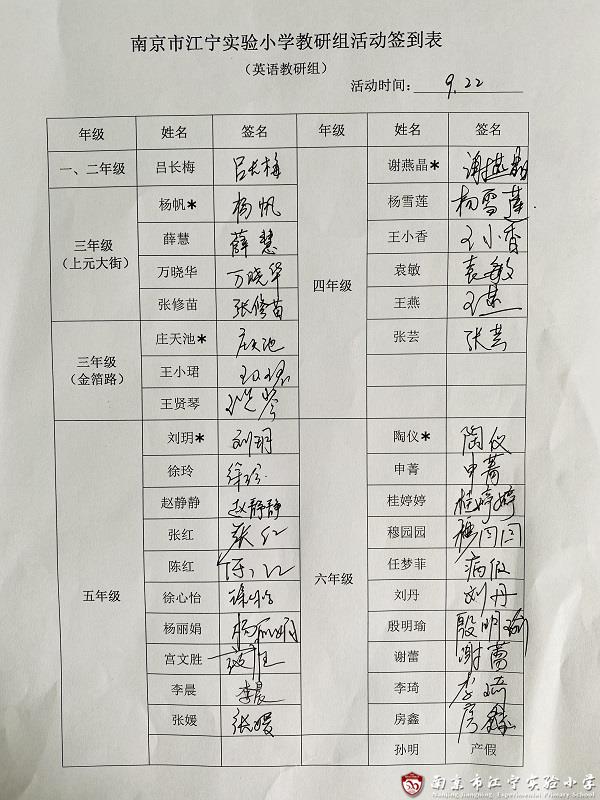 南京市江宁实验小学教研组活动签到表
（英语教研组）
活动时间： 9.22
年级 姓名 签名 年级 姓名 签名
一、二年级 吕长梅 吕长梅 四年级 谢燕晶* 谢燕晶
三年级（上元大街） 杨帆* 杨帆 杨雪莲 杨雪莲
薛慧 薛慧 王小香 王小香
万晓华 万晓华 袁敏 袁敏
张修苗 张修苗 王燕 王燕
三年级（金箔路） 庄天池* 庄天池 张芸 张芸
王小珺 王小珺
王贤琴 王贤琴
五年级 刘玥* 刘玥 六年级 陶仪* 陶仪
徐玲 徐玲 申菁 申菁
赵静静 赵静静 桂婷婷 桂婷婷
张红 张红 穆园园 穆园园
陈红 陈红 任梦菲 病假
徐心怡 徐心怡 刘丹 刘丹
杨丽娟 杨丽娟 殷明瑜 殷明瑜
宫文胜 谢蕾 谢蕾
李晨 李晨 李琦 李琦
张媛 张媛 房鑫 房鑫
孙明 产假
南京市江宁实验小学
Nanjing Jiangning Experimental Primary School